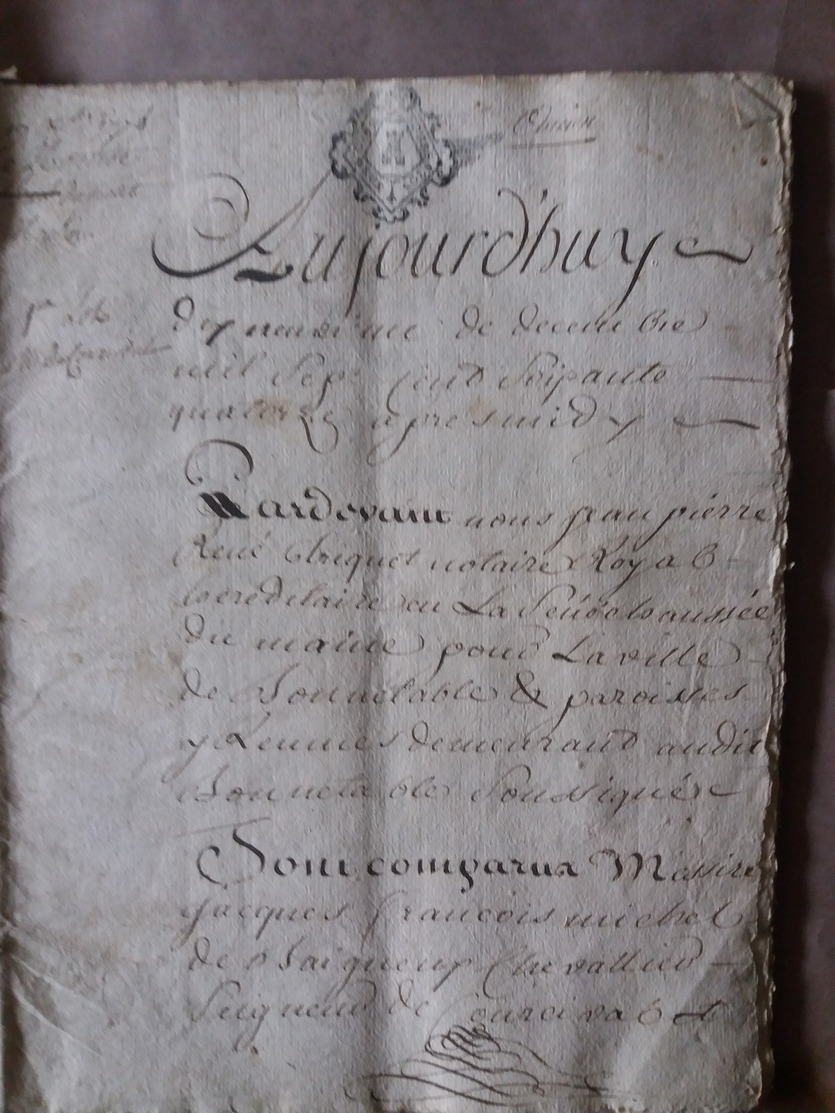 Aujourd'huy
dix neuvieme de decembre
mil sept cent soixante
quatorze apres midy
Pardevant nous jean pierre
René notaire Royal
hereditaire en La Sénéchaussée
du maine pour La ville
de Bonnétable & paroisses
y annexes demeurant audit
Bonnetable Soussigné
Sont comparus Messire
jacques francois michel
de Chevallier
Seigneur de Courcival